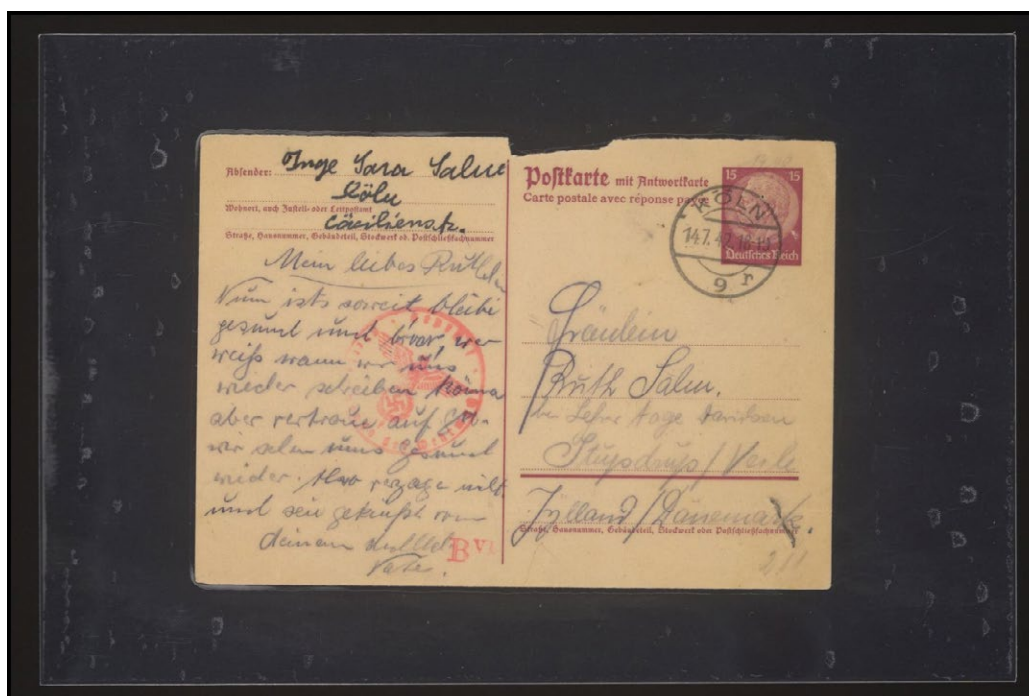 Absender: Inge Sara Salm
Köln
Wohnort, auch Zustell- oder Leitpostamt
Cäcilienstr.
Straße, Hausnummer, Gebäudeteil, Stockwerk od. Postschließfachnummer
Mein liebes Ruthchen
Nun ists soweit bleibe
gesund und brav wer
weiß wann wir uns
wieder schreiben könn
aber vertraue auf
wir sehen uns gesund
wieder. Also verzage nicht
und sei geküßt von
deinem
Vater.
B VI
Postkarte mit Antwortkarte
Carte postale avec réponse payée
15 15
Deutsches Reich
KÖLN
14.7.42.18-19
9 r
Fräulein
Ruth Salm.
Lehrer Aage Davidsen
Vejle
Jylland / Dänemark.
Straße, Hausnummer, Gebäudeteil, Stockwerk oder Postschließfachnummer